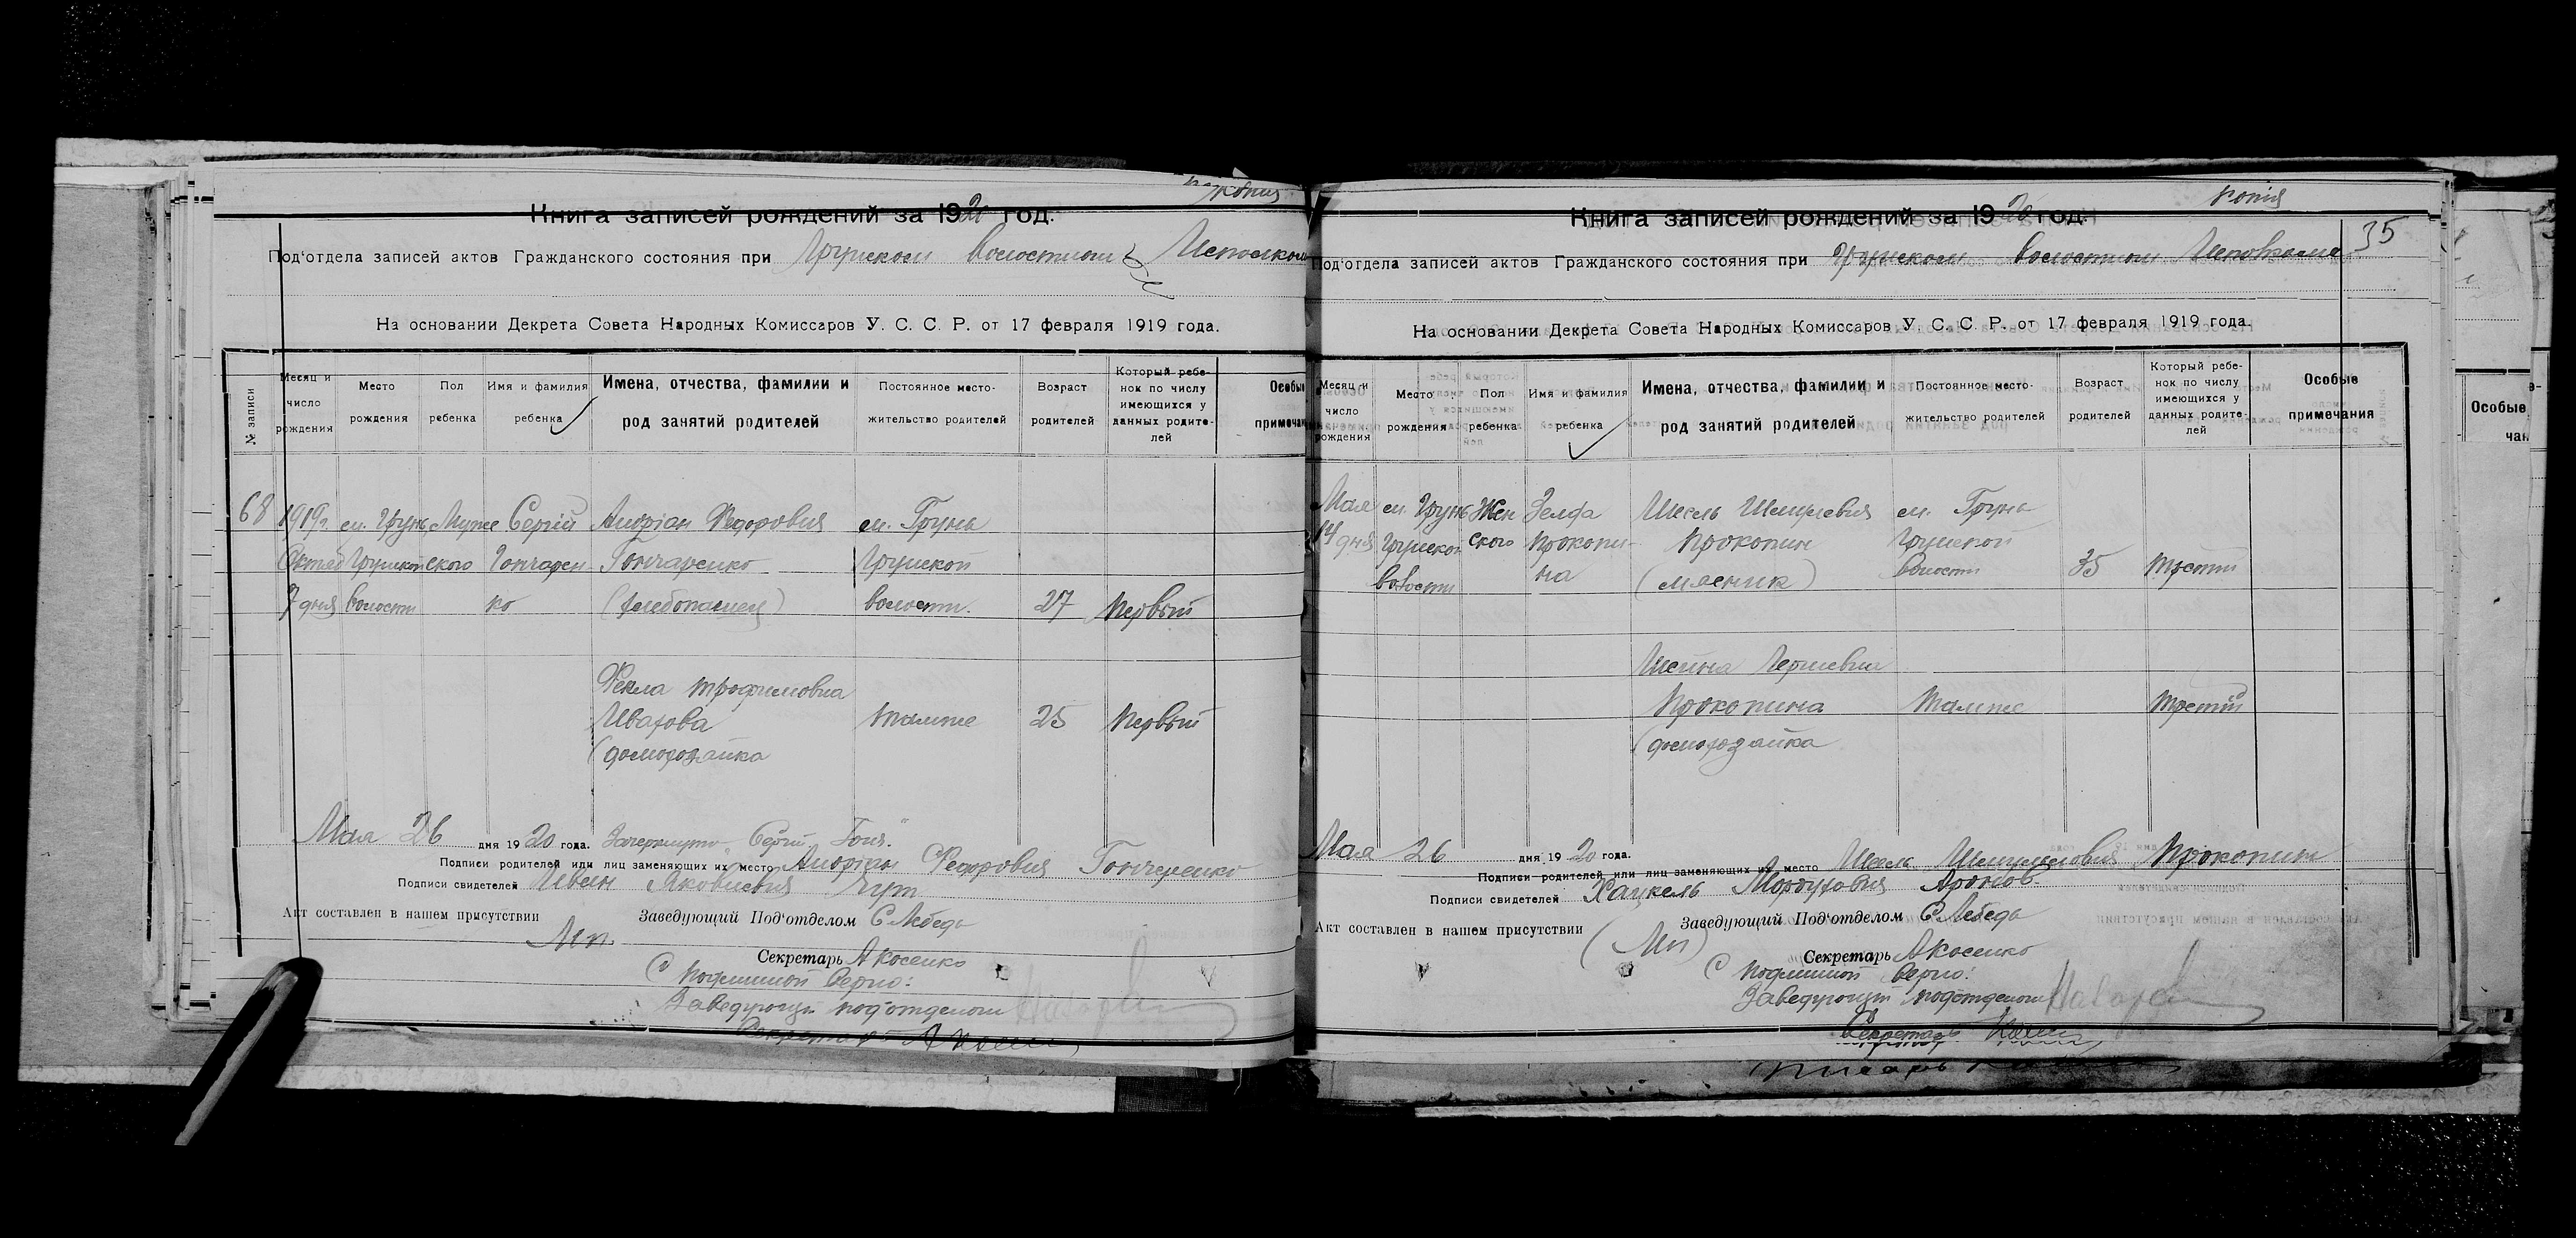 копия
Книга записей рождений за 1920 год.
Под'отдела записей актов Гражданского состояния при Грунском волостном Исполкоме
На основании Декрета Совета Народных Комиссаров У. С. С. Р. от 17 февраля 1919 года.
№ записи
Месяц и число рождения
Место рождения
Пол ребенка
Имя и фамилия ребенка
Имена, отчества, фамилии и род занятий родителей
Постоянное место-жительство родителей
Возраст родителей
Который ребе-нок по числу имеющихся у данных родите-лей
Особые примечан
68 1919г. м. Грунь Муже Сергій Андріан Федорович м. Грунь
Октяб Грунской ского Гончарен Гончаренко Грунской
7 дня волости ко (хлебопашец) волости. 27 Первый
Фекла Трофимовна
Ивахова тамже 25 Первый
(домохозайка
Мая 26 дня 1920 года. Зачеркнуто „Сергій Гон."
Подписи родителей или лиц заменяющих их место Андріан Федорович Гончаренко
Подписи свидетелей Иван Яковлевич Чут
Акт составлен в нашем присутствии Заведующий Под'отделом С Лебедь
Мп.
Секретарь А Косенко
С подлинной верно:
Заведующий подотделом
Секретарь
копія
35
Книга записей рождений за 1920 год.
Под'отдела записей актов Гражданского состояния при Грунском волостном Исполкоме
На основании Декрета Совета Народных Комиссаров У. С. С. Р. от 17 февраля 1919 года.
Месяц и число рождения
Место рождения
Пол ребенка
Имя и фамилия ребенка
Имена, отчества, фамилии и род занятий родителей
Постоянное место-жительство родителей
Возраст родителей
Который ребе-нок по числу имеющихся у данных родите-лей
Особые примечания
Мая м. Грунь Жен Зелда м. Грунь
14 дня Грунской ского Прокопи- Прокопин Грунской
волости на (мясник) волости 35 Третій
Шейна
Прокопина тамже Третій
(домохозайка
Мая 26 дня 1920 года.
Подписи родителей или лиц заменяющих их место Прокопин
Подписи свидетелей Хацкель Мордухович Аронов
Акт составлен в нашем присутствии Заведующий Под'отделом С Лебедь
(Мп)
Секретарь А Косенко
С подлинной верно:
Заведующий подотделом
Секретарь
Особые
чан